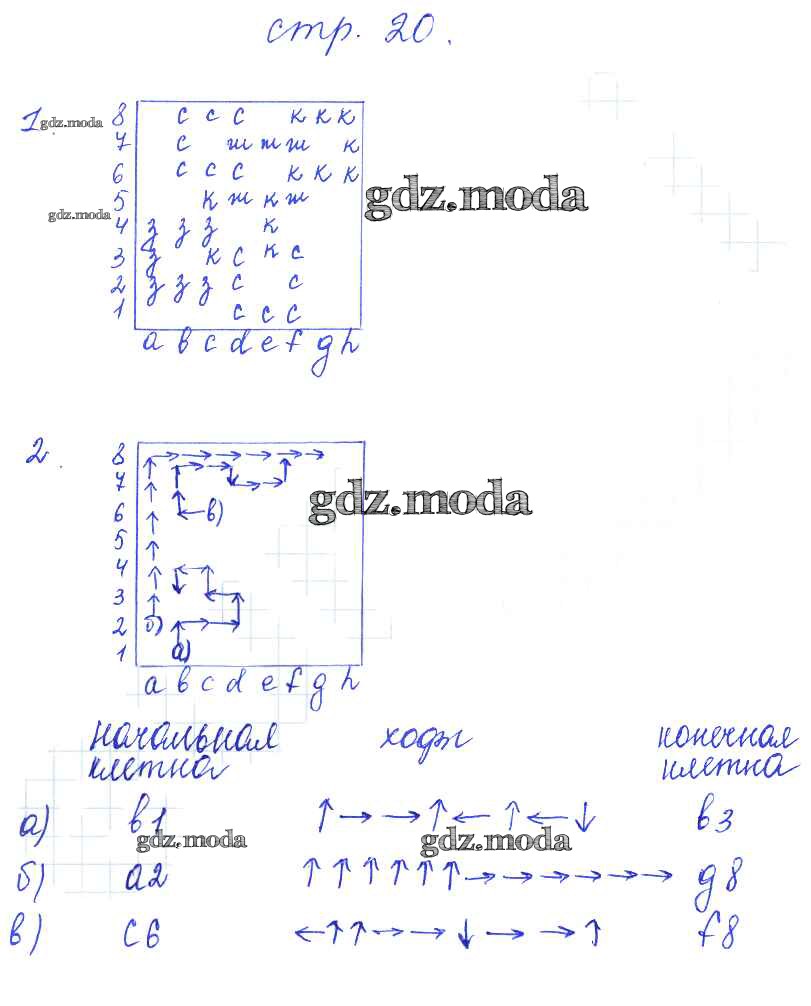 стр. 20.
1. gdz.moda
8 с с с к к к
7 с ж ж ж к
6 с с с к к к
gdz.moda
5 к ж к ж
gdz.moda
4 з з з к
3 з к с к с
2 з з з с с
1 с с с
a b c d e f g h
2.
8 → → → → → →
7
gdz.moda
6 в)
5
4
3
2 б)
1 а)
a b c d e f g h
начальная ходы конечная
клетка клетка
а) b1 ↑ → → ↑ ← ↑ ← ↓ b3
gdz.moda gdz.moda
б) a2 ↑ ↑ ↑ ↑ ↑ ↑ → → → → → → g8
в) c6 ← ↑ ↑ → → ↓ → → ↑ f8